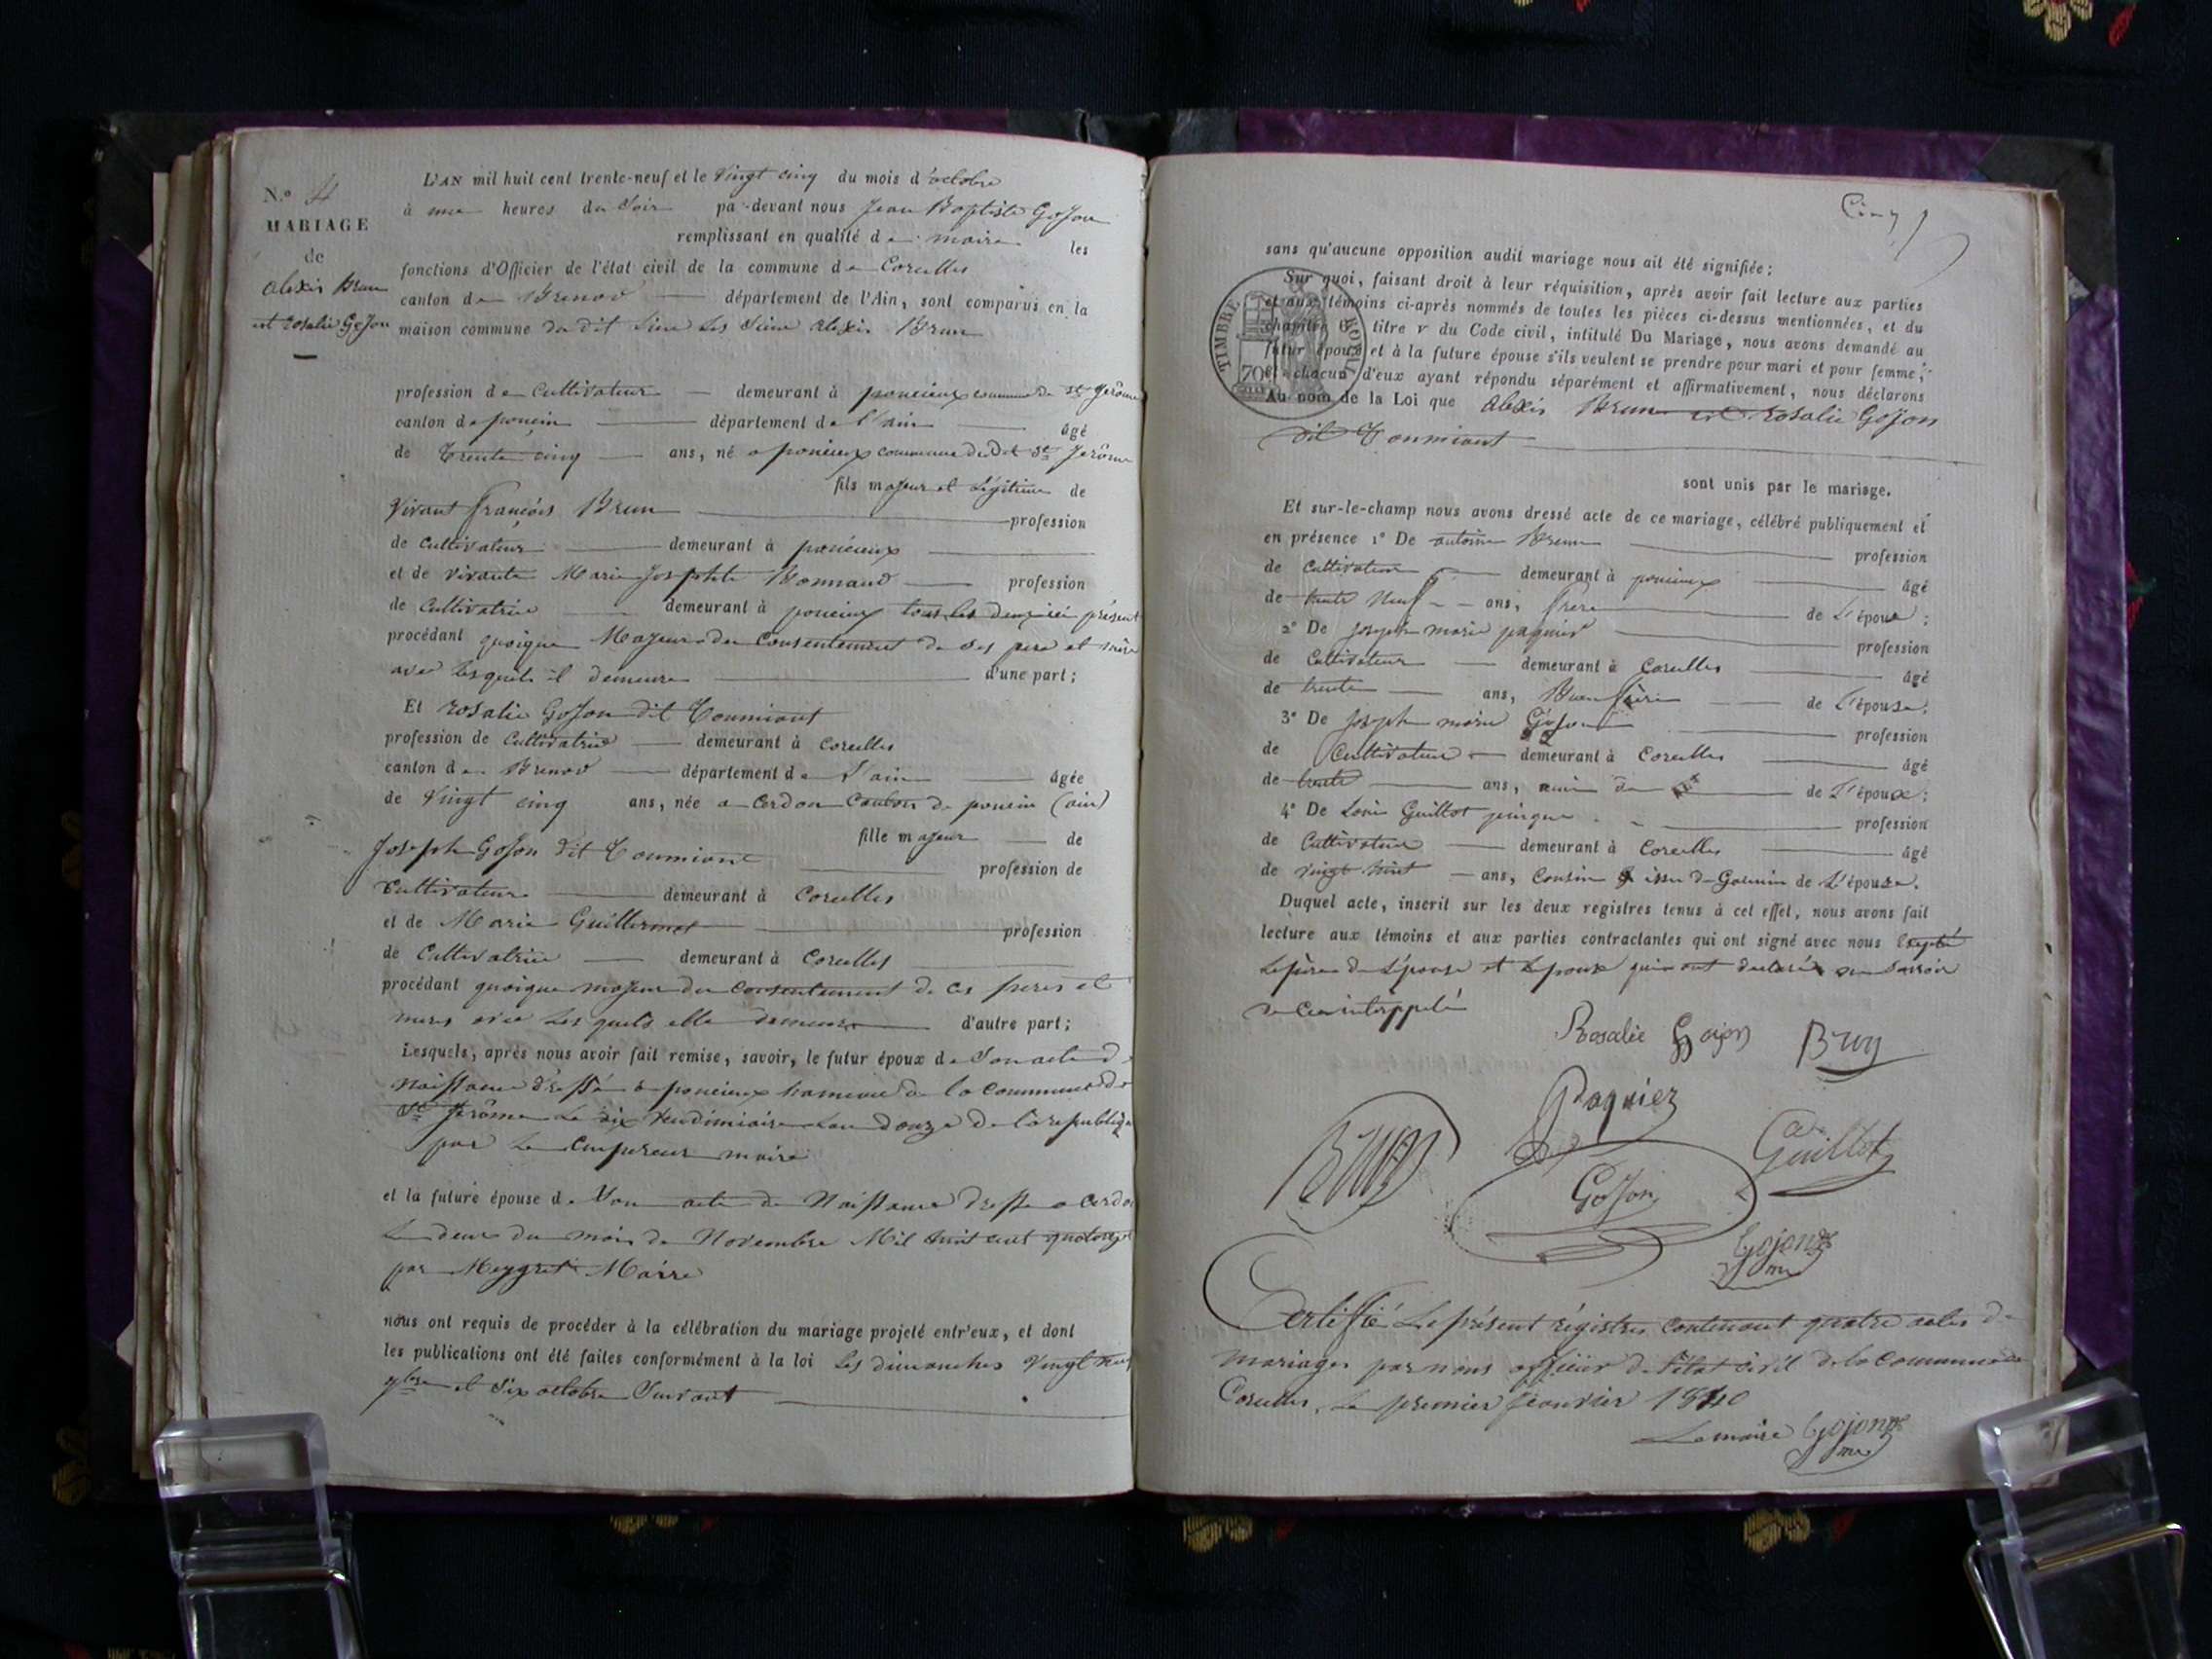 N.º 4
MARIAGE
de
alexis Brun
et rosalie GoJon
L'AN mil huit cent trente-neuf et le vingt cinq du mois d'octobre
à une heures du soir pa-devant nous Jean Baptiste GoJon
remplissant en qualité de maire les
fonctions d'Officier de l'état civil de la commune de Corcelles
canton de Brenod département de l'Ain, sont comparus en la
maison commune du dit lieu les sieur alexis Brun
profession de cultivateur demeurant à poncieux commune de st Jerôme
canton de poncin département de l'ain âgé
de trente cinq ans, né a poncieux commune du dit st Jerôme
fils majeur et légitime de
vivant françois Brun profession
de cultivateur demeurant à poncieux
et de vivante Marie Josephte Bonnaud profession
de cultivatrice demeurant à poncieux tous les deux ici présent
procédant quoique Majeur du consentement de ses pere et mère
avec lesquels il demeure d'une part;
Et rosalie GoJon dit Tourniant
profession de cultivatrice demeurant à corcelles
canton de Brenod département de l'ain âgée
de vingt cinq ans, née a Cerdon Canton de poncin (ain)
fille majeur de
Joseph GoJon dit profession de
cultivateur demeurant à corcelles
et de Marie Guillermet profession
de Cultivatrice demeurant à Corcelles
procédant quoique majeur du consentement de ces peres et
meres avec les quels elle demeure d'autre part;
Lesquels, après nous avoir fait remise, savoir, le futur époux de son acte de
naissance dréssé à poncieux hameau de la commune de
st Jerôme le dix vendimiaire l'an douze de la republique
par le maire
et la future épouse de son acte de Naissance dressé a Cerdon
Le deux du mois de Novembre Mil huit cent quatorze
par Meygret Maire
nous ont requis de procéder à la célébration du mariage projeté entr'eux, et dont
les publications ont été faites conformément à la loi les dimanches vingt neuf
7bre et six octobre suivant
Cinq
sans qu'aucune opposition audit mariage nous ait été signifiée;
Sur quoi, faisant droit à leur réquisition, après avoir fait lecture aux parties
et aux témoins ci-après nommés de toutes les pièces ci-dessus mentionnées, et du
chapitre 6, titre v du Code civil, intitulé Du Mariage, nous avons demandé au
futur époux et à la future épouse s'ils veulent se prendre pour mari et pour femme;
et chacun d'eux ayant répondu séparément et affirmativement, nous déclarons
Au nom de la Loi que alexis Brun et rosalie GoJon
dit Tourniant
TIMBRE ROYAL
70
sont unis par le mariage.
Et sur-le-champ nous avons dressé acte de ce mariage, célébré publiquement et
en présence 1º De antoine Brun profession
de cultivateur demeurant à poncieux âgé
de trente neuf ans, frère de l'époux;
2º De Joseph marie paquier profession
de Cultivateur demeurant à Corcelles âgé
de trente ans, Beau frère de l'épouse;
3º De Joseph marie GoJon profession
de Cultivateur demeurant à Corcelles âgé
de trente ans, ami de de l'époux;
4º De Louis Guillot profession
de Cultivateur demeurant à Corcelles âgé
de vingt huit ans, cousin issu de Germin de l'épouse.
Duquel acte, inscrit sur les deux registres tenus à cet effet, nous avons fait
lecture aux témoins et aux parties contractantes qui ont signé avec nous excepté
le père de l'épouse et l'époux qui ont declaré ne savoir
de ce interppelé
Rosalie Gojon Brun
Paquiez
Brun
Guillot
GoJon
Gojon
me
Certiffié Le présent régistre contenant quatre actes de
mariages par nous officier de l'état civil de la commune de
Corcelles, le premier Janvier 1840
Le maire Gojon
me